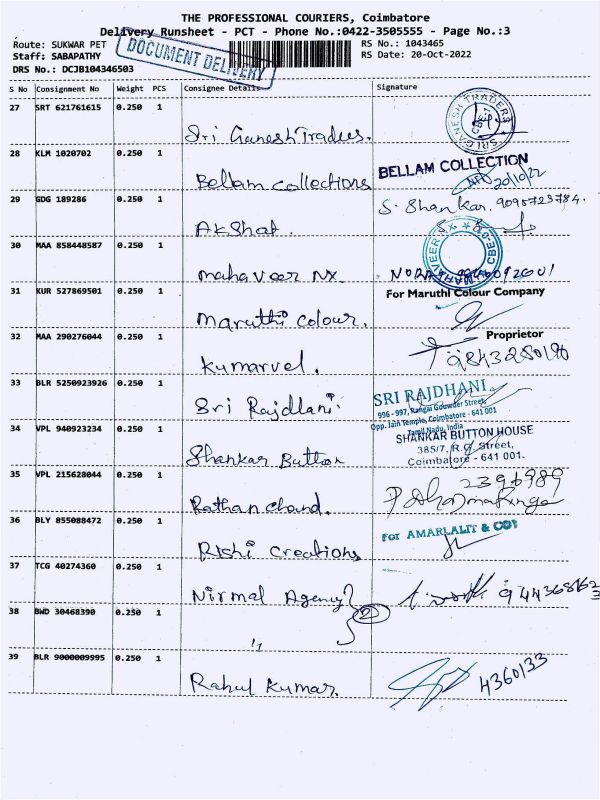 THE PROFESSIONAL COURIERS, Coimbatore
Delivery Runsheet - PCT - Phone No.:0422-3505555 - Page No.:3
Route: SUKWAR PET
Staff: SABAPATHY
DRS No.: DCJB104346503
DOCUMENT DELIVERY
RS No.: 1043465
RS Date: 20-Oct-2022
S No Consignment No Weight PCS Consignee Details Signature
27 SRT 621761615 0.250 1
Sri Ganesh Traders.
SRI GANESH TRADERS
28 KLM 1020702 0.250 1
Bellam collections
BELLAM COLLECTION
20/10/22
29 GDG 189286 0.250 1
Akshat.
S. Shankar. 9095723784.
30 MAA 858448587 0.250 1
mahaveer NX.
MAHAVEER NX CBE-0
31 KUR 527869501 0.250 1
maruthi colour.
For Maruthi Colour Company
Proprietor
32 MAA 290276044 0.250 1
kumarvel.
33 BLR 5250923926 0.250 1
Sri Rajdhani.
SRI RAJDHANI
996 - 997, Rangai Gouwder Street,
Opp. Jain Temple, Coimbatore - 641 001
Tamil Nadu, India
34 VPL 940923234 0.250 1
Shankar Button
SHANKAR BUTTON HOUSE
385/7, R.G. Street,
Coimbatore - 641 001.
35 VPL 215628044 0.250 1
Rathan chand.
2396989
36 BLY 855088472 0.250 1
Rishi creations
For AMARLALIT & CO
37 TCG 40274360 0.250 1
Nirmal Agency
38 BWD 30468390 0.250 1
2
"
39 BLR 9000009995 0.250 1
Rahul kumar.
4360133